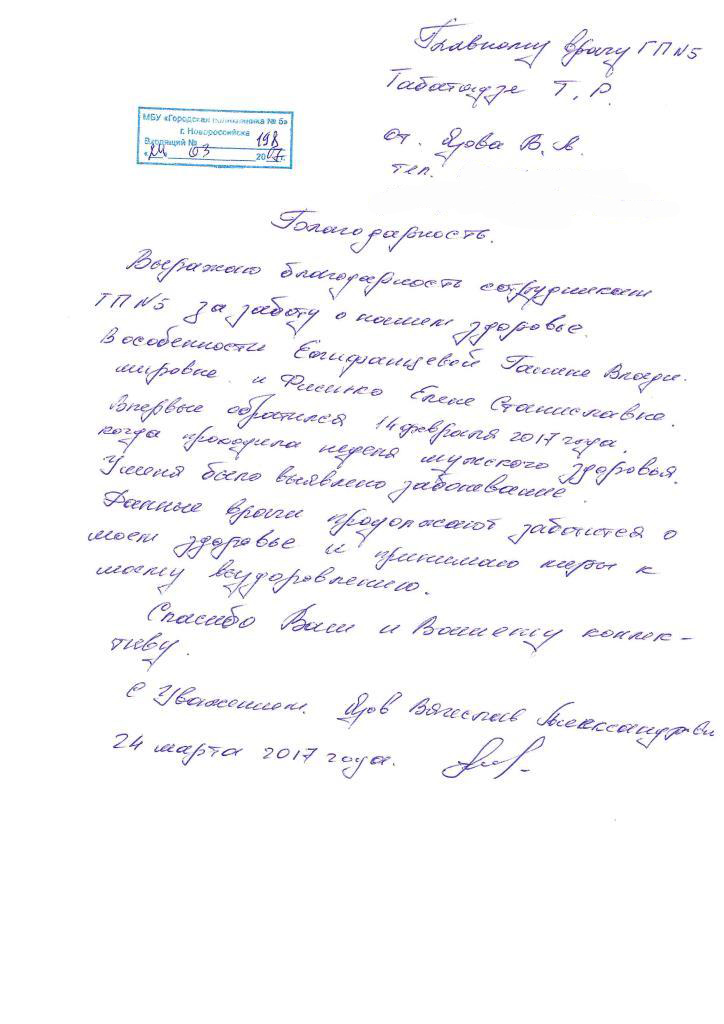 Главному врачу ГП№5
Табатадзе Т. Р.
МБУ «Городская поликлиника № 5»
г. Новороссийска
Входящий № 198
«24» 03 2017г.
от. Язова В. А.
тел.
Благодарность.
Выражаю благодарность сотрудникам
ГП№5 за заботу о нашем здоровье.
В особенности Епифанцевой Галине Влади-
мировне и Фисенко Елене Станиславне.
Впервые обратился 14 февраля 2017 года,
когда проходила неделя мужского здоровья.
У меня было выявлено заболевание.
Данные врачи продолжают заботится о
моем здоровье и принимаю меры к
моему выздоровлению.
Спасибо Вам и Вашему коллек-
тиву.
С Уважением. Язов Вячеслав Александрович
24 марта 2017 года.